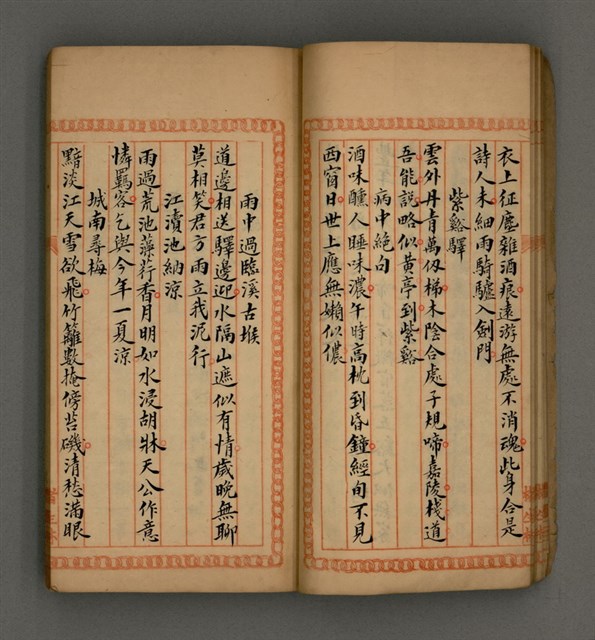 衣上征塵雜酒痕遠游無處不消魂此身合是
詩人未細雨騎驢入劍門
紫谿驛
雲外丹青萬仞梯木陰合處子規啼嘉陵棧道
吾能說略似黃亭到紫谿
病中絕句
酒味醺人睡味濃午時高枕到昏鐘經旬不見
西窗日世上應無嬾似儂
雨中過臨溪古堠
道邊相送驛邊迎水隔山遮似有情歲晚無聊
莫相笑君方雨立我泥行
江瀆池納涼
雨過荒池藻荇香月明如水浸胡牀天公作意
憐羈客乞與今年一夏涼
城南尋梅
黯淡江天雪欲飛竹籬數掩傍苔磯清愁滿眼